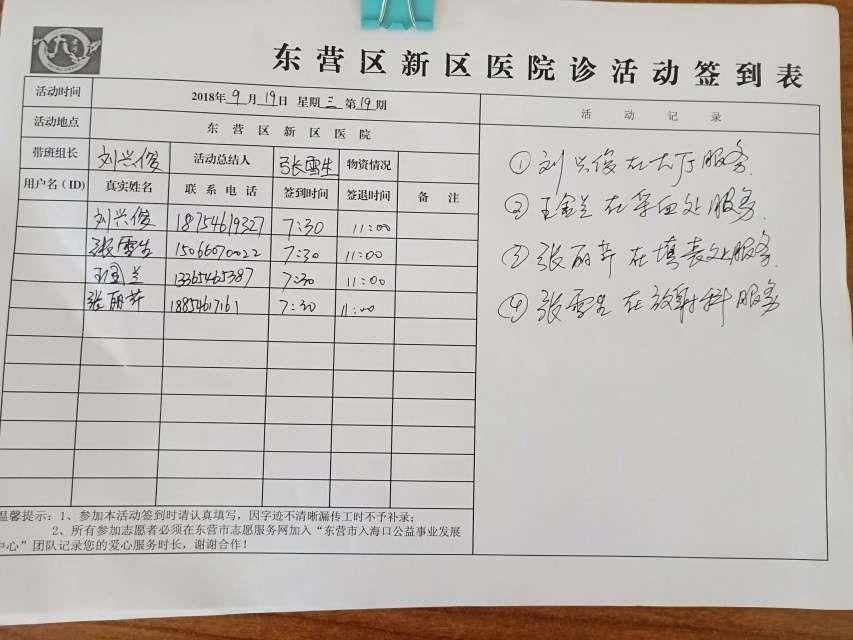 东营区新区医院诊活动签到表
活动时间 2018年9月19日 星期三 第19期
活动地点 东营区新区医院
带班组长 刘兴俊 活动总结人 张雪生 物资情况
用户名(ID) 真实姓名 联系电话 签到时间 签退时间 备注
刘兴俊 18754619327 7:30 11:00
张雪生 15066070022 7:30 11:00
王金兰 13365465387 7:30 11:00
张丽萍 18854617161 7:30 11:00
温馨提示：1、参加本活动签到时请认真填写，因字迹不清晰漏传工时不予补录；
2、所有参加志愿者必须在东营市志愿服务网加入“东营市入海口公益事业发展
中心”团队记录您的爱心服务时长，谢谢合作！
活动记录
① 刘兴俊在大厅服务.
② 王金兰在采血处服务.
③ 张丽萍在填表处服务.
④ 张雪生在放射科服务